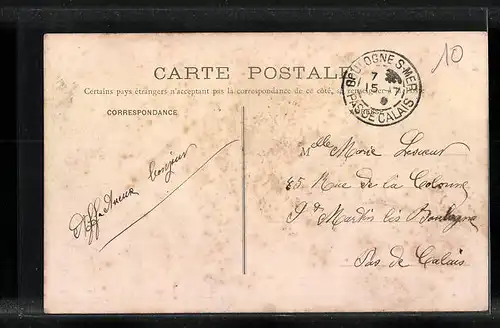 10
BOULOGNE-S-MER
7
15 - 7
PAS DE CALAIS
CARTE POSTALE
Certains pays étrangers n'acceptent pas la correspondance de ce côté, se renseigner à la
CORRESPONDANCE
Affectueux bonjour
Melle Marie Lesueur
85 Rue de la Colonne
St Martin lès Boulogne
Pas de Calais